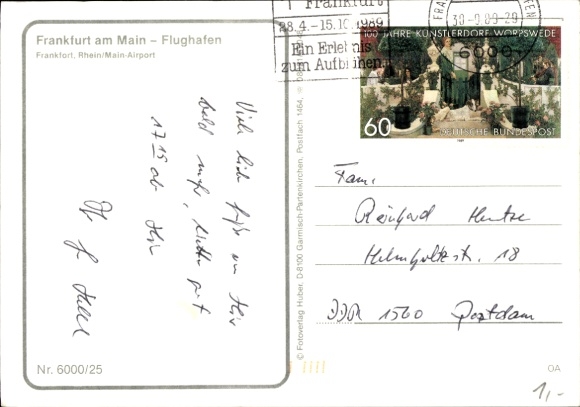 Frankfurt am Main – Flughafen
Frankfurt, Rhein/Main-Airport
Viele liebe Grüße von Hir
bald mehr,
17 15 ab Hir
Nr. 6000/25
© Fotoverlag Huber, D-8100 Garmisch-Partenkirchen, Postfach 1464,
Frankfurt
28.4.–15.10.1989
Ein Erlebnis
zum Aufblühen
30.-9.89-20
6000
100 JAHRE KÜNSTLERDORF WORPSWEDE
60
DEUTSCHE BUNDESPOST
Fam.
Reinhard Hentze
Helmholtzstr. 18
DDR 1560 Potsdam
OA
1,-